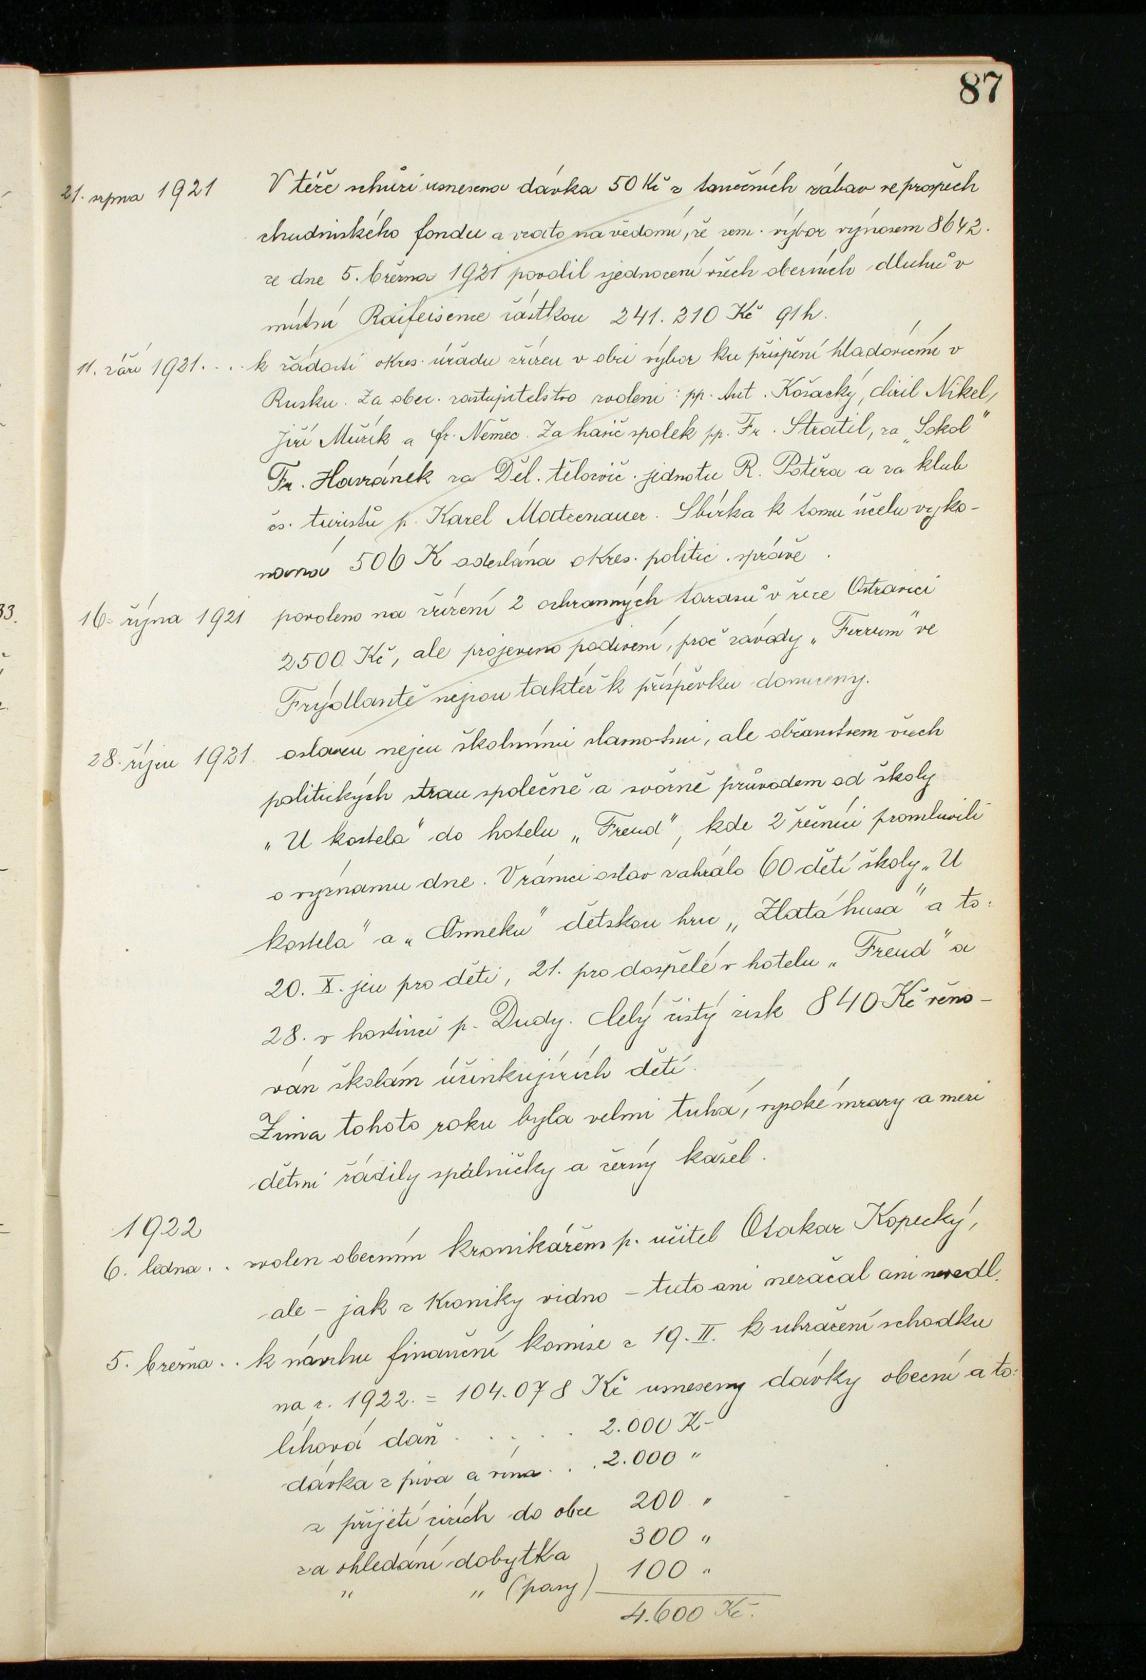 87
21. srpna 1921 V téže schůzi usnesena dávka 50 Kč z tanečních zábav ve prospěch
chudinského fondu a vzato na vědomí, že zem. výbor výnosem 8642.
ze dne 5. března 1921 povolil sjednocení všech obecních dluhů v
místní Raifeisence částkou 241.210 Kč 91h.
11. září 1921.... k žádosti okres. úřadu zřízen v obci výbor ku přispění hladovícím v
Rusku. Za obec. zastupitelstvo zvoleni: pp. Ant. Košacký, Ciril Nikel,
Jiří Mužík a fr. Němec. Za hasič spolek pp. Fr. Stratil, za „Sokol"
Fr. Havránek za Děl. tělocvič. jednotu R. Potěra a za klub
čs. turistů p. Karel Matzenauer. Sbírka k tomu účelu vyko-
naná 506 K odeslána okres. politic. správě.
16. října 1921 povoleno na zřízení 2 ochranných tarasů v řece Ostravici
2500 Kč, ale projeveno podivení, proč závody „Ferrum" ve
Frýdlantě nejsou taktéž k příspěvku donuceny.
28. říjen 1921. oslaven nejen školními slavnostmi, ale občanstvem všech
politických stran společně a svorně průvodem od školy
„U kostela" do hotelu „Freud", kde 2 řečníci promluvili
o významu dne. V rámci oslav zahrálo 60 dětí školy „U
kostela" a „Osmeku" dětskou hru „Zlatá husa" a to:
20. X. jen pro děti, 21. pro dospělé v hotelu „Freud" a
28. v hostinci p. Dudy. Celý čistý zisk 840 Kč věno-
ván školám účinkujících dětí.
Zima tohoto roku byla velmi tuhá, vysoké mrazy a mezi
dětmi řádily spalničky a černý kašel.
1922
6. ledna.. zvolen obecním kronikářem p. učitel Otakar Kopecký,
ale - jak z kroniky vidno - tuto ani nezačal ani nevedl.
5. března.. k návrhu finanční komise z 19. II. k uhražení schodku
na r. 1922. = 104.078 Kč usneseny dávky obecní a to:
líhová daň ..... 2.000 K-
dávka z piva a vína... 2.000 "
z přijetí cizích do obce 200 "
za ohledání dobytka 300 "
" " (pasy) 100 "
4.600 Kč.